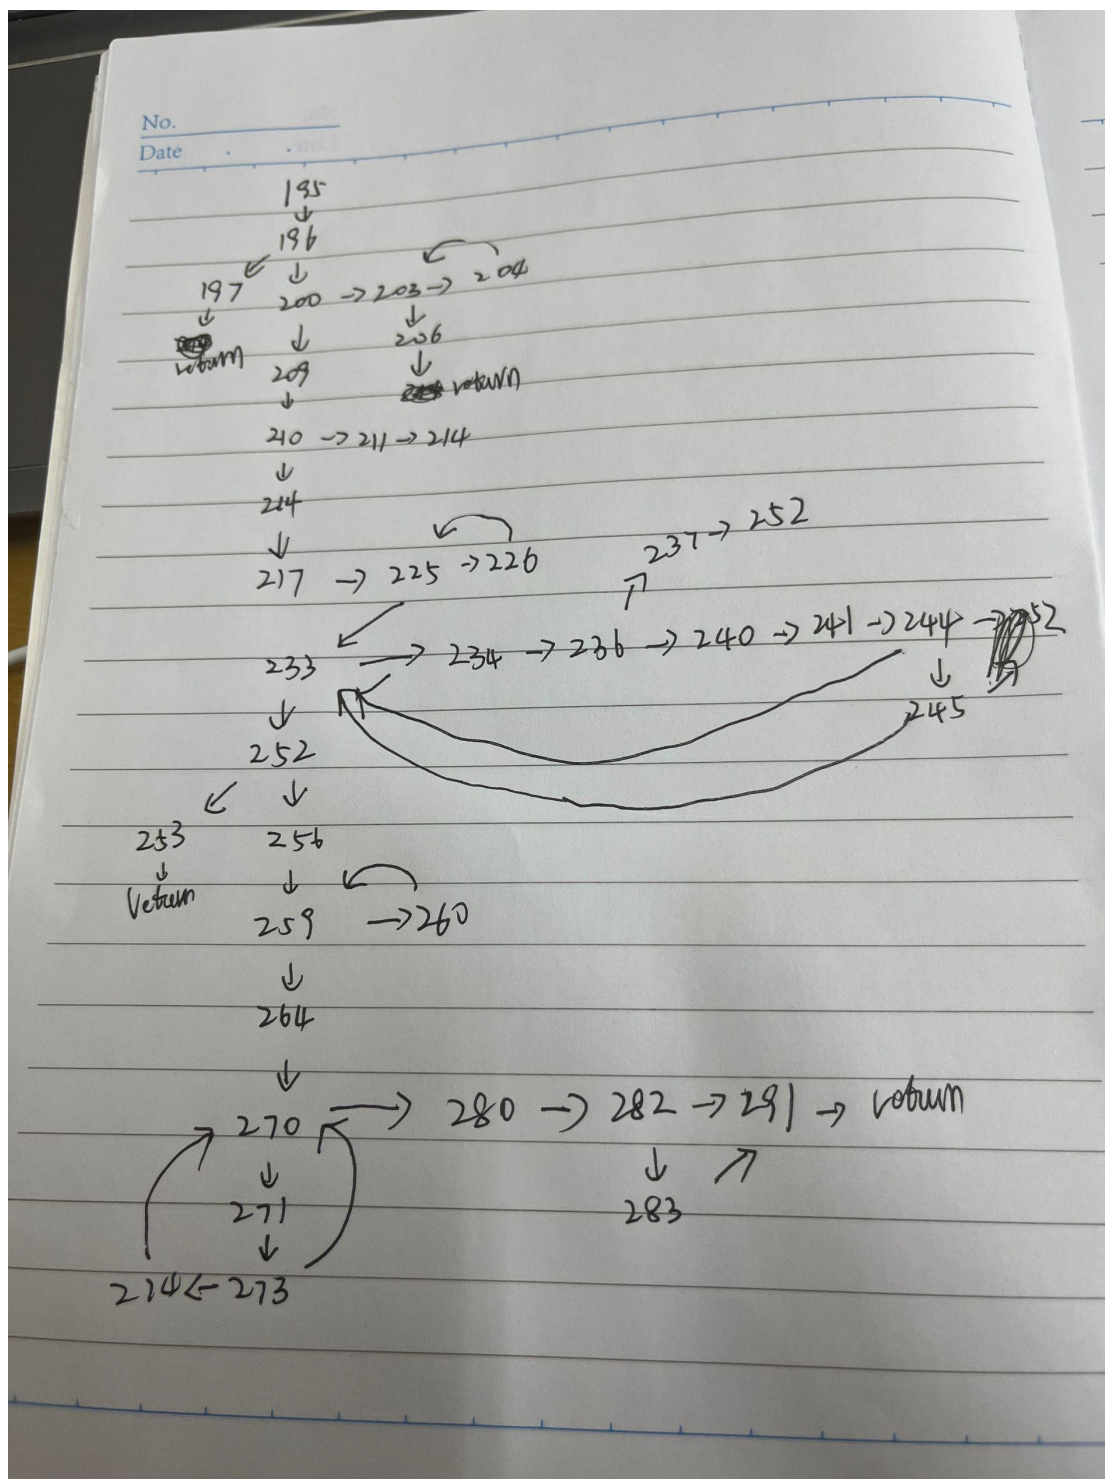 No.
Date
195
↓
196
↙ ↓
197 200 → 203 → 204
↓ ↓ ↓
return 209 206
↓ ↓
return
210 → 211 → 214
↓
214
↓
217 → 225 → 226
237 → 252
↗
233 → 234 → 236 → 240 → 241 → 244 → 252
↓ ↓
245
252
↙ ↓
253 256
↓ ↓
Return
259 → 260
↓
264
↓
270 → 280 → 282 → 291 → return
↓ ↓ ↗
271 283
↓
274 ← 273